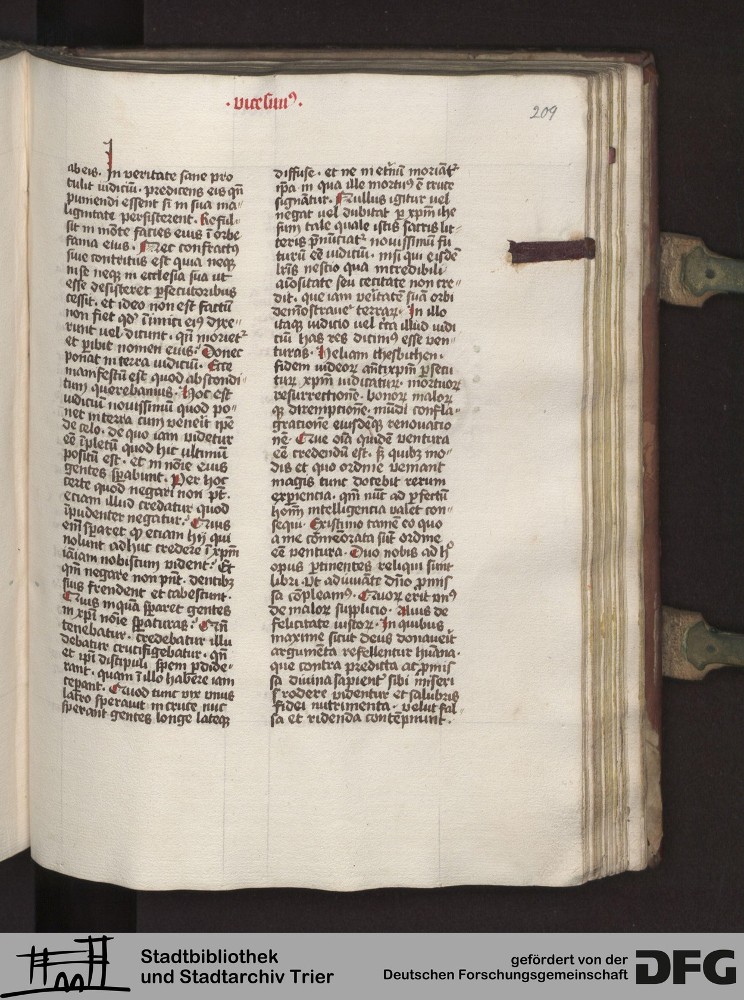 ·vicesimꝰ·
209
ab eis. In veritate sane pro
tulit iudiciū· predicens eis qn̄
puniendi essent si in sua ma-
lignitate persisterent. Reful-
sit in mōte facies eius ī orbe
fama eius. Nec confractꝰ
siue contritus est quia neqꝫ
in se neqꝫ in ecclesia sua ut
esse desisteret ꝑsecutoribus
cessit· et ideo non est factū
non fiet qd̕ īimici eiꝰ dixe-
runt vel dicunt· qn̄ morietᷣ
et ꝑibit nomen eius· Donec
ponat in terra iudiciū. Ecce
manifestū est quod abscondi-
tum querebamus. Hoc est
iudiciū nouissimū quod po-
net in terra cum veneit ip̄e
de celo. de quo iam videtur
eē īpletū quod hic ultimū
positū est. et in nōie eius
gentes sꝑabunt. Per hoc
certe quod negari non pt̄·
etiam illud credatur quod
īpudenter negatur. Quis
em̄ sꝑaret ꝙ etiam hij qui
nolunt adhuc credere ī xp̄m
iā iam nobiscum vident· Et
qm̄ negare non pn̄t· dentibꝫ
suis frendent et tabescunt.
Quis inquā sꝑaret gentes
in xp̄i nōie sꝑaturas· Cū
tenebatur· credebatur illu
debatur crucifigebatur· qn̄
et ip̄i discipuli spem ꝑdide-
rant· quam ī illo habere iam
ceperant. Quod tunc vix vnus
latro sperauit in cruce nūc
sperant gentes longe lateqꝫ
diffuse· et ne in et̄nū moriāt᷑
ip̄a in qua ille mortuꝰ ē cruce
signātur. Nullus igitur vel
negat vel dubitat ꝑ xp̄m ihe
sum tale quale istis sacris lit-
teris p̄nūciat᷑ nouissimū fu
turū eē iudiciū· nisi qui eisdē
lr̄is nescio qua incredibili
aiositate seu cecitate non cre-
dit· que iam veītatē suā orbi
demōstrauer̄ terraꝝ· In illo
itaqꝫ iudicio vel cᷓca illud iudi
ciū has res dicimꝰ esse ven-
turas. Heliam thesbithen·
fidem iudeoꝝ antixpm̄ ꝑsecu
tuꝝ xp̄m iudicatuꝝ· mortuoꝝ
resurrectionē· bonoꝝ maloꝝ
qꝫ diremptionē· mūdi confla-
grationē eiusdēqꝫ renouatio
nē· Que oīa quidē ventura
eē credendū est· sꝫ quibꝫ mo-
dis et quo ordine veniant
magis tunc docebit rerum
experiencia· qm̄ nūc ad ꝑfectū
hoīm̄ intelligencia valet con-
sequi. Existimo tamē eo quo
a me cōmēorata sūt ordine
eē ventura. Duo nobis ad hᵒ
opus ꝑtinentes reliqui sunt
libri. Ut adiuuāte dn̄o ꝓmis
sa cōpleamꝰ· Quoꝝ erit vnꝰ
de maloꝝ supplicio. Alius de
felicitate iustoꝝ. In quibus
maxime sicut deus donaueīt
argumēta refellentur hūana·
que contra predicta ac ꝓmis
sa diuina sapient̄ sibi miseri
rodere videntur et salubris
fidei nutrimenta· velut fal-
sa et ridenda contēpnunt.
Stadtbibliothek
und Stadtarchiv Trier
gefördert von der
Deutschen Forschungsgemeinschaft
DFG